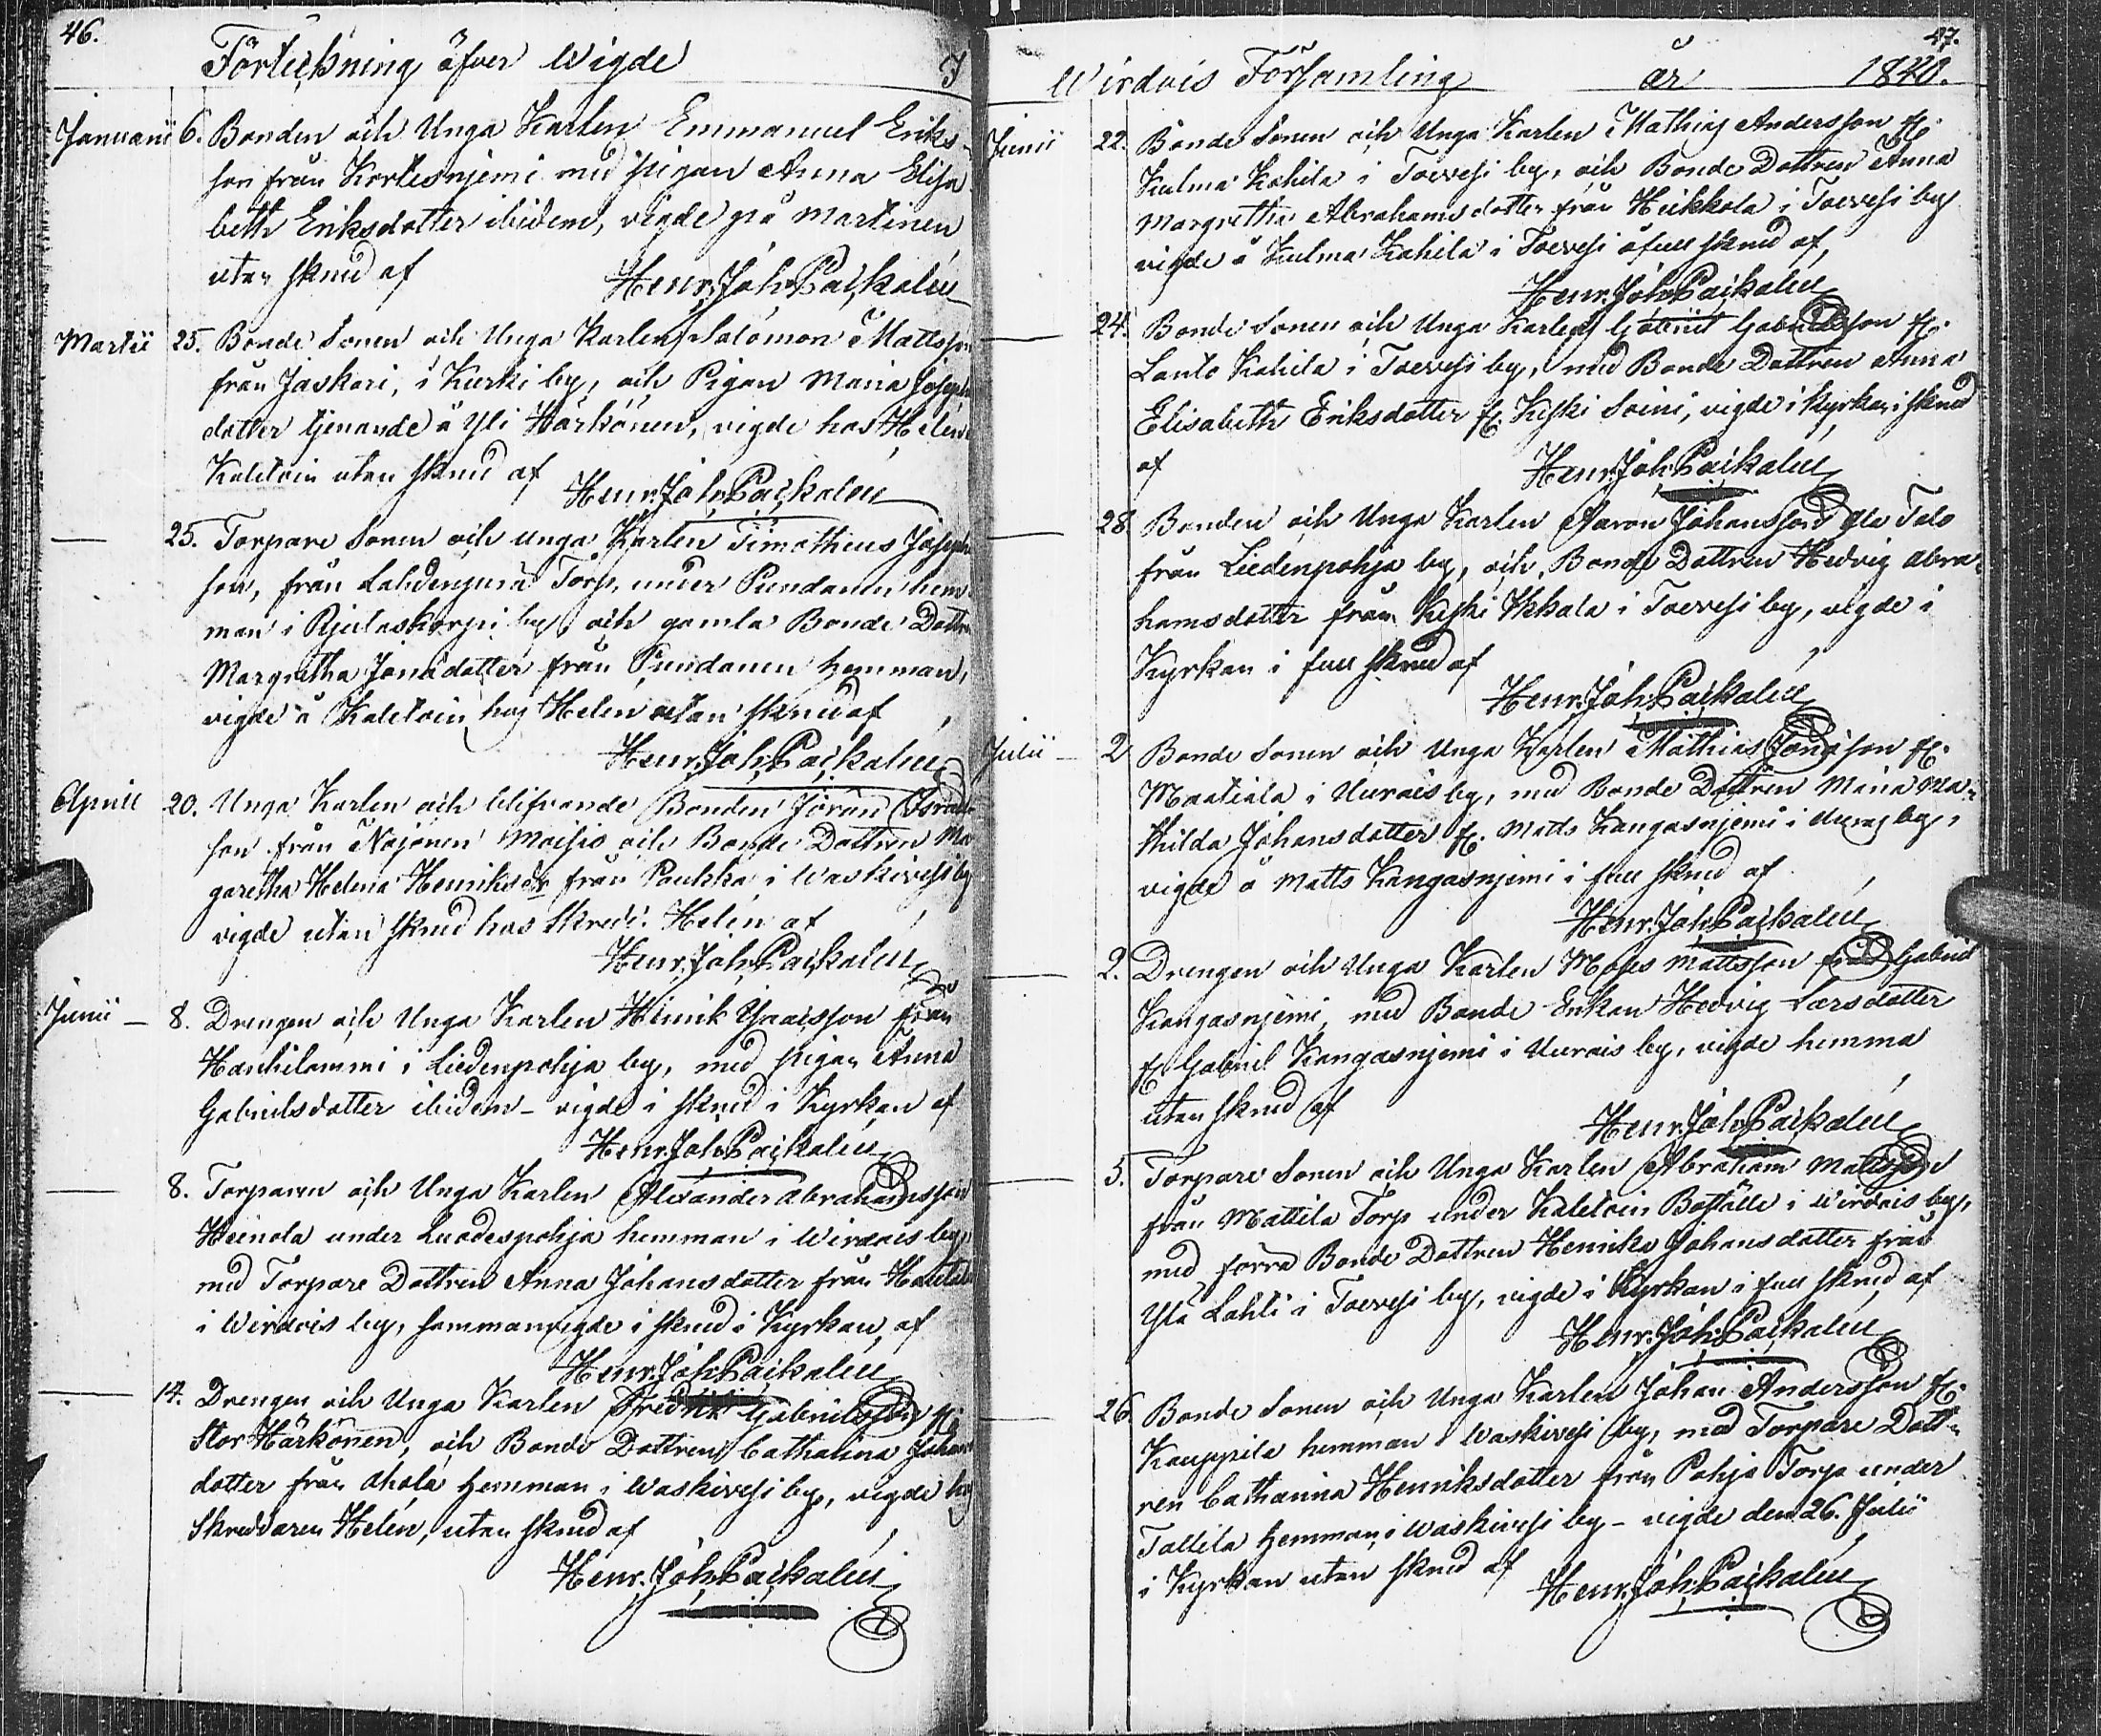 46.
Förteckning öfver Wigde
I
Januarii 6. Bonden och Unga Karlen Emmanuel Eriks-
son från Kortesnjemi med pigan Anna Elisa
beth Eriksdotter ibidem, vigde på Martinen
utan skrud af
Henr. Joh. Pajkalén
Martii 25. Bonde Sonen och Unga Karlen Salomon Mattsson
från Jäskari, i Kurki by, och Pigan Maria Josephs
dotter tjenande å Yli Härkönen, vigde hos Helén
Kaletoin utan skrud af
Henr. Joh. Pajkalén
— 25. Torpare Sonen och unga Karlen Timotheus Josephs
son, från Lahdenperä Torp, under Pundanen hem-
man i Pjelaskorpi by, och gamla Bonde Dottren
Margretha Jonædotter från Pundanen Hemman,
vigde å Kaletoin hos Helen utan skrud af
Henr. Joh. Pajkalén
Aprill 20. Unga Karlen och blifvande Bonden Jöran
son från Näjönen Maisio och Bonde Dottren Ma
garetha Helena Henriksdr från Paukka i Waskivesi by
vigde utan skrud hos Skredd. Helén af
Henr. Joh. Pajkalén
Junii — 8. Drengen och Unga Karlen Hinrik Ysaacsson från
Hanhilammi i Liedenpohja by, med pigan Anna
Gabrielsdotter ibidem – vigde i skrud i Kyrkan af
Henr. Joh. Pajkalén
— 8. Torparen och Unga Karlen Alexander Abrahamsson
Heinola under Luodespohja hemman i Wirdois by,
med Torpare Dottren Anna Johansdotter från
i Wirdois by, sammanvigde i skrud i Kyrkan, af
Henr. Joh. Pajkalén
— 14. Drengen och Unga Karlen Fredrik Gabrielsson fr.
Stor Härkönen, och Bonde Dottren Catharina Johans
dotter från Ahola Hemman i Waskivesi by, vigde hos
Skreddaren Helén, utan skrud af
Henr. Joh. Pajkalén
47.
Wirdois Församling år 1840.
Junii 22. Bonde Sonen och Unga Karlen Mathias Andersson fr.
Kulma Kahila i Toevesi by, och Bonde Dottren Anna
Margretha Abrahamsdotter från Heikkola i Toevesi by
vigde å Kulma Kahila i Toevesi å full skrud af,
Henr. Joh. Pajkalén
— 24. Bonde Sonen och Unga Karlen Gabriel Gabrielsson fr.
Lanto Kahila i Toevesi by, med Bonde Dottren Anna
Elisabeth Eriksdotter fr. Keski Soini, vigde i kyrkan i skrud
af
Henr. Joh. Pajkalén
— 28. Bonden och Unga Karlen Aaron Johansson Ala Talo
från Liedenpohja by, och Bonde Dottren Hedvig Abra-
hamsdotter från Keski Ikkala i Toevesi by, vigde i
Kyrkan i full skrud af
Henr. Joh. Pajkalén
Julii — 2 Bonde Sonen och Unga Karlen Mathias Jonasson fr.
Maatiala i Uurais by, med Bonde Dottren Maria Ma-
thilda Johansdotter fr. Matts Kangasnjemi i Uurais by,
vigde å Matts Kangasnjemi i full skrud af
Henr. Joh. Pajkalén
— 2. Drengen och Unga Karlen Moses Mattsson från Gabriel
Kangasnjemi, med Bonde Enkan Hedvig Larsdotter
fr. Gabriel Kangasnjemi i Uurais by, vigde hemma
utan skrud af
Henr. Joh. Pajkalén
— 5. Torpare Sonen och Unga Karlen Abraham Mattsson
från Mattila Torp under Kaletoin Boställe i Wirdois by,
med förra Bonde Dottren Henrika Johansdotter från
Ylä Lahti i Toevesi by, vigde i Kyrkan i full skrud af
Henr. Joh. Pajkalén
— 26. Bonde Sonen och Unga Karlen Johan Andersson fr.
Kauppila hemman i Waskivesi by, med Torpare Dott-
ren Catharina Henriksdotter från Pohja Torp under
Tallila Hemman i Waskivesi by – vigde den 26. Julii
i Kyrkan utan skrud af
Henr. Joh. Pajkalén